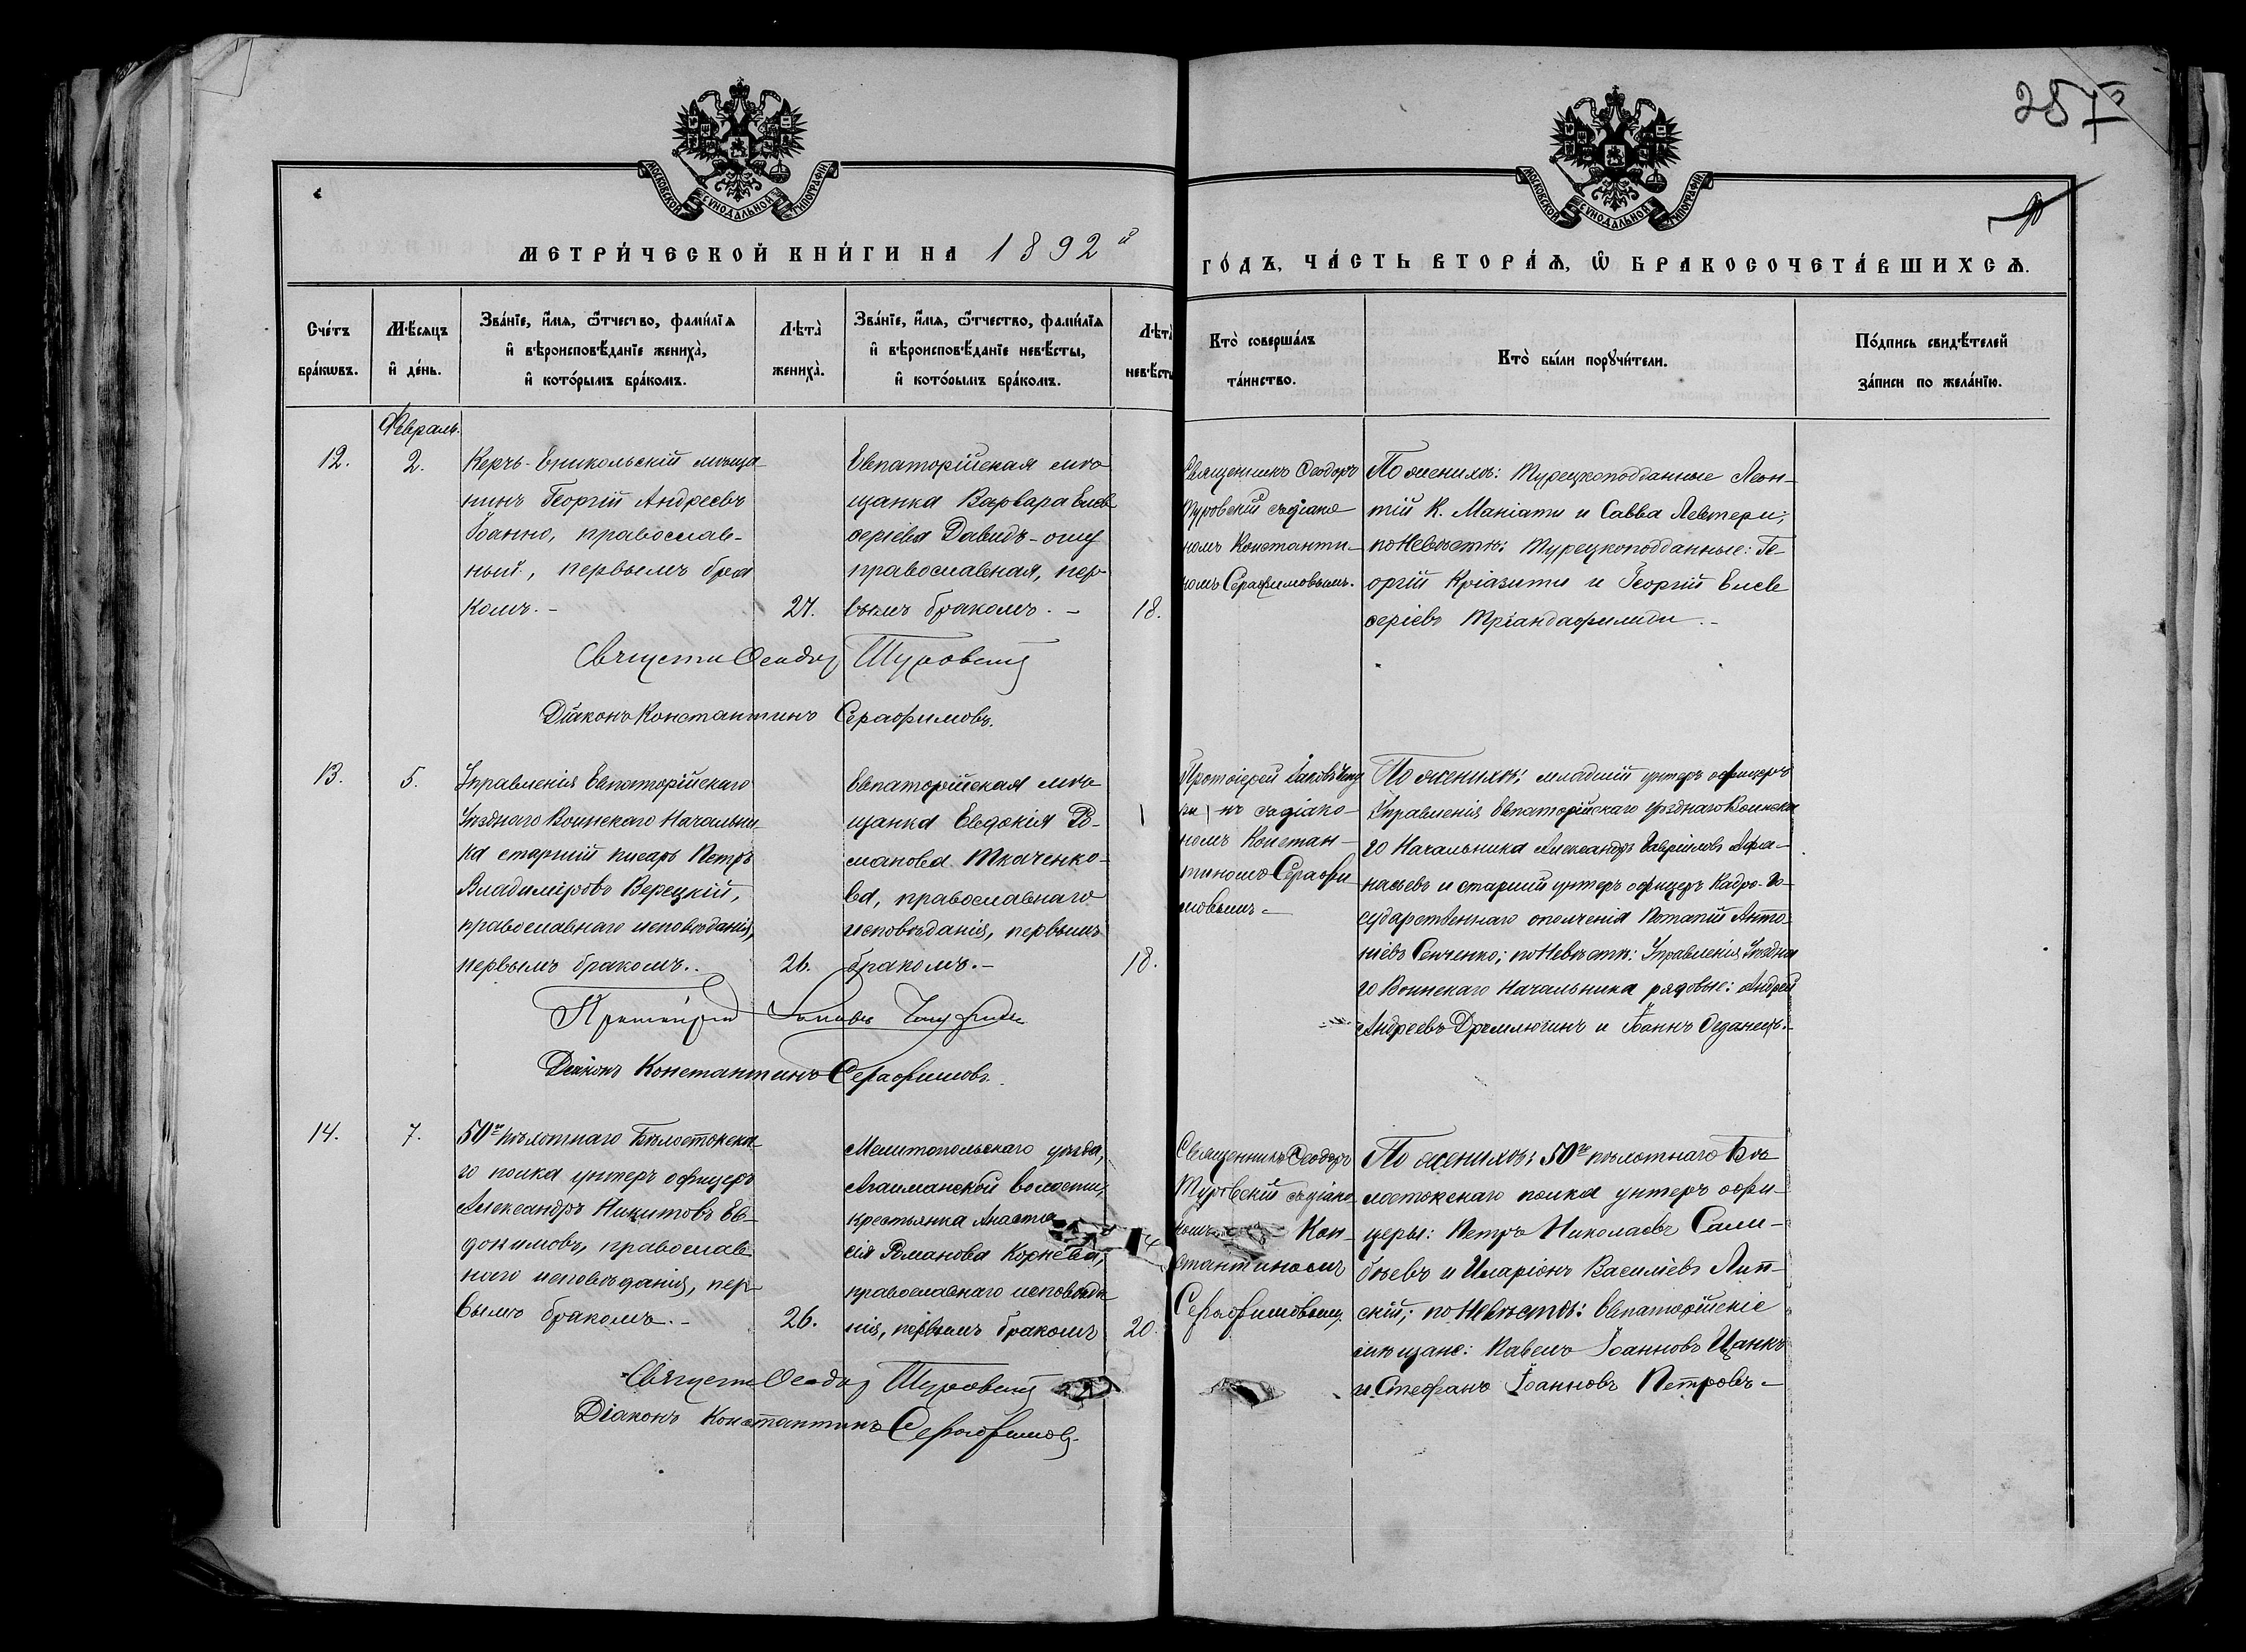 257
МОСКОВСКОЙ СѴНОДАЛЬНОЙ ТИПОГРАФІИ.
МОСКОВСКОЙ СѴНОДАЛЬНОЙ ТИПОГРАФІИ.
МЕТРИ́ЧЕСКОЙ КНИ́ГИ НА 1892й
ГО́ДЪ, ЧА́СТЬ ВТОРА́Ѧ, Ѽ БРАКОСОЧЕТА́ВШИХСѦ.
Сче́тъ
бра́кѡвъ.
Мѣ́сяцъ
и҆ де́нь.
Зва́нїе, и҆́мя, ѻ҆́тчество, фами́лїя
и҆ вѣроисповѣ́данїе жениха̀,
и҆ кото́рымъ бра́комъ.
Лѣта̀
жениха̀.
Зва́нїе, и҆́мя, ѻ҆́тчество, фами́лїя
и҆ вѣроисповѣ́данїе невѣ́сты,
и҆ кото́рымъ бра́комъ.
Лѣта̀
невѣ́сты
Кто̀ соверша́лъ
та́инство.
Кто̀ бы́ли порꙋчи́тели.
По́дпись свидѣ́телей
за́писи по жела́нїю.
Февраль.
12.
2.
Керчь-Еникольскій мѣща-
нинъ Георгій Андреевъ
Іоанно, православ-
ный, первымъ бра
комъ. -
27.
Евпаторійская мѣ-
щанка Варвара Елев
ѳеріева Давидъ-оглу
православная, пер-
вымъ бракомъ. -
18.
Священникъ Ѳеодоръ
Туровскій съ діако
номъ Константи-
номъ Серафимовымъ.
По женихѣ: Турецкоподданные Леон-
тій К. Маніати и Савва Левтери;
по невѣстѣ: Турецкоподданные: Ге-
оргій Кріазити и Георгій Елев
ѳеріевъ Тріандафилиди. -
Священ Ѳеодор Туровскій
Діаконъ Константинъ Серафимовъ.
13.
5.
Управленія Евпаторійскаго
Уѣзднаго Воинскаго Начальни-
ка старшій писарь Петръ
Владиміровъ Верецкій,
православнаго исповѣданія,
первымъ бракомъ..
26.
Евпаторійская мѣ-
щанка Евдокія Ро-
манова Ткаченко-
ва, православнаго
исповѣданія, первымъ
бракомъ. -
18.
Протоіерей Іаковъ
нъ съ діако-
номъ Констан-
тиномъ Серафи-
мовымъ -
По женихѣ: младшій унтеръ офицеръ
Управленія Евпаторійскаго Уѣзднаго Воинска
го Начальника Александръ Гавріиловъ Афа-
насьевъ и старшій унтеръ офицеръ Кадро-Го-
сударственнаго ополченія Потапій Анто-
ніевъ Сенченко; по невѣстѣ: Управленія Уѣздна
го Воинскаго Начальника рядовые: Андрей
Андреевъ Дремлюгинъ и Іоаннъ Оданецъ. -
Протоіерей Іаковъ
Діаконъ Константинъ Серафимовъ.
14.
7.
50го пѣхотнаго Бѣлостокска-
го полка унтеръ офицеръ
Александръ Никитовъ Ев-
докимовъ, православ
наго исповѣданія, пер-
вымъ бракомъ. -
26.
Мелитопольскаго уѣзда,
Агайманской волости,
крестьянка Анаста
сія Романова Корнева,
православнаго исповѣда
нія, первымъ бракомъ
20.
Священникъ Ѳеодоръ
Туровскій съ діако
номъ Кон-
стантиномъ
Серафимовымъ.
По женихѣ: 50го пѣхотнаго Бѣ
лостокскаго полка унтеръ офи-
церы: Петръ Николаевъ Сали-
бѣевъ и Иларіонъ Василіевъ Лип-
скій; по невѣстѣ: Евпаторійскіе
мѣщане: Павелъ Іоанновъ Цанкъ
и Стефанъ Іоанновъ Петровъ -
Священ Ѳеодор Туровскій
Діаконъ Константинъ Серафимовъ.